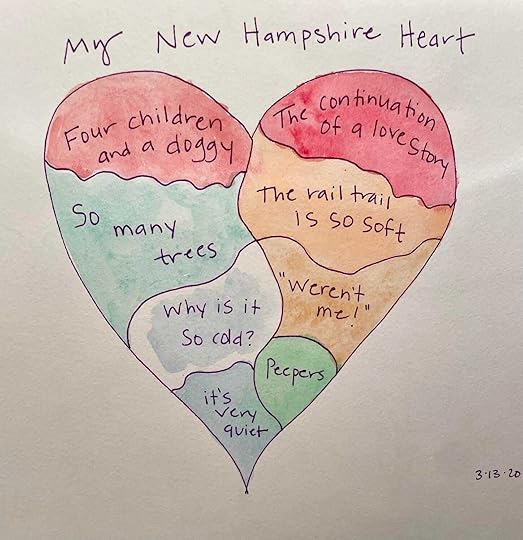 My New Hampshire Heart
Four children
and a doggy
The continuation
of a love story
So many
trees
The rail trail
is so soft
Why is it
so cold?
"Weren't
me!"
Peepers
it's
very
quiet
3.13.20